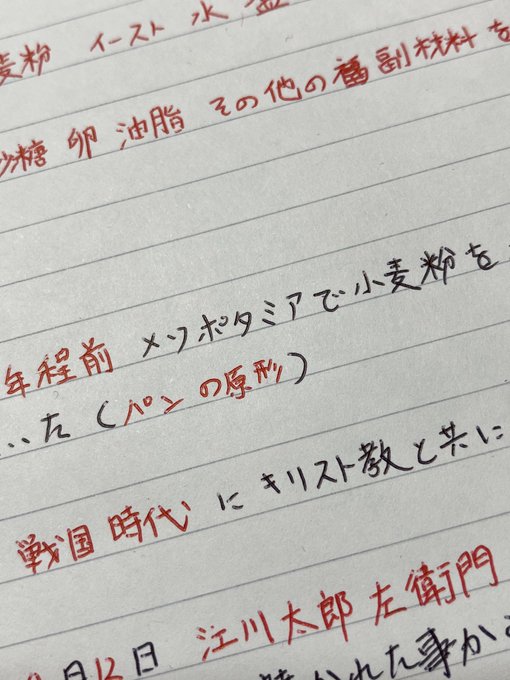 麦粉 イースト 水 塩
砂糖 卵 油脂 その他の 副材料を
年程前 メソポタミアで小麦粉を
た (パンの原形)
戦国時代 に キリスト教と共に
月12日 江川太郎左衛門
かれた事か